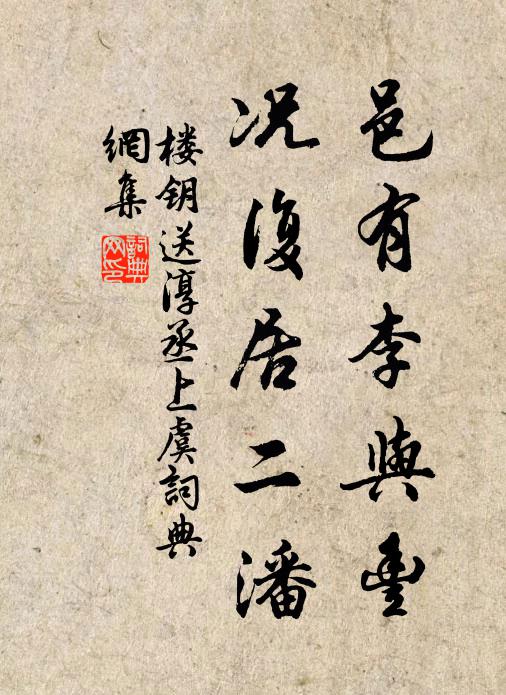 邑有李與豐
况復居二潘
楼钥送淳丞上虞詞典
網集
詞典網印